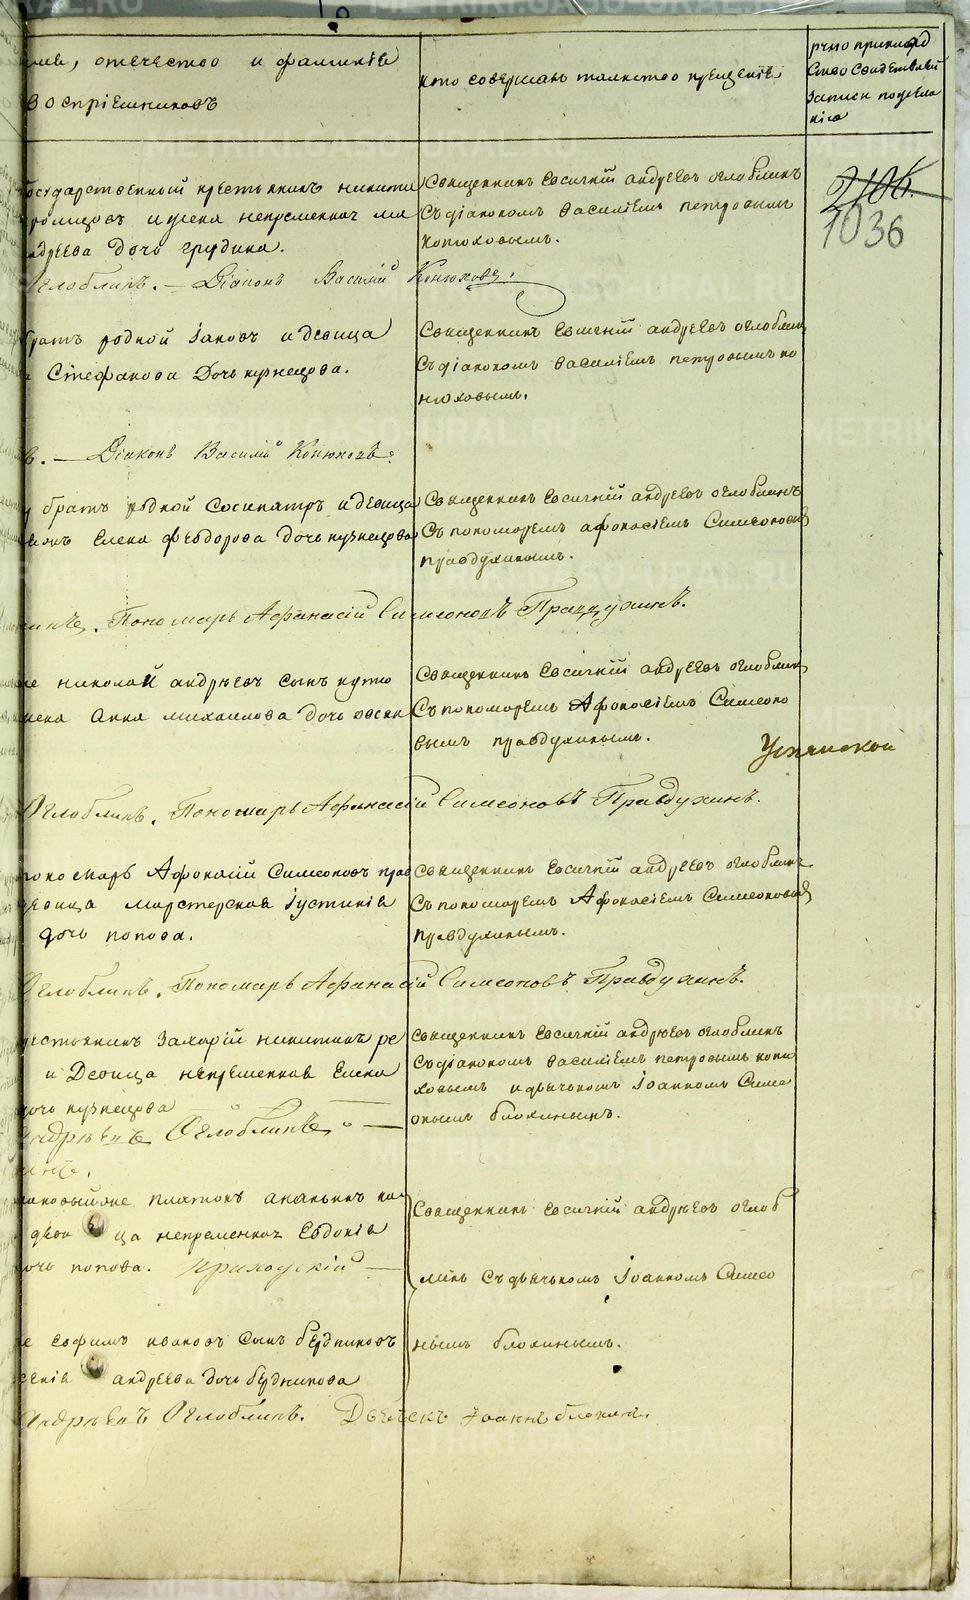 отечество и фамиліѣ
воспріемниковъ
кто совершалъ таинство крещеніѣ
записи
1036
Государственный крестьянинъ никита
и жена непременнаг ма
андреева дочь грудина.
Священникъ евсигній андреевъ оглоблинъ
съ діакономъ василіемъ петровымъ
конюховымъ.
Оглоблинъ. — Діаконъ Василій Конюховъ.
братъ родной іаковъ и девица
Стефанова дочь кузнецова.
Священникъ евсигній андреевъ оглоблин
съ діакономъ василіемъ петровымъ ко
нюховымъ.
въ. — Діаконъ Василій Конюховъ.
братъ родной Сосипатръ и девица
елена феодорова дочь кузнецова
Священникъ евсигній андреевъ оглоблинъ
съ пономоремъ афонасіемъ Симеоновым
правдухинымъ.
Пономарь Афанасій Симеоновъ Правдухинъ.
николай андрѣевъ сынъ
жена анна михаилова дочь
Священникъ евсигній андреевъ оглоблин
съ пономоремъ Афонасіемъ Симеоно
вымъ правдухинымъ.
Оглоблинъ. Пономарь Афанасій Симеоновъ Правдухинъ.
пономарь Афонасій Симеоновъ прав
девица мастерская іустиніѣ
дочь попова.
Священникъ евсигній андреевъ оглоблинъ
съ пономоремъ Афонасіемъ Симеоновым
правдухинымъ.
Оглоблинъ. Пономарь Афанасій Симеоновъ Правдухинъ.
крестьянинъ захарій никитинъ ре
и девица непременнаѣ елена
дочь кузнецова
Священникъ евсигній андрѣевъ оглоблинъ
съ діакономъ василіемъ петровымъ коню
ховымъ и дьячькомъ іоанномъ Симе
оновымъ блохинымъ.
Андрѣевъ Оглоблинъ. —
платонъ ананьинъ
деви ца непременнаг евдокіѣ
дочь попова. приходскій —
Священникъ евсигній андрѣевъ оглоб
линъ съ дьячькомъ іоанномъ Симео
нымъ блохинымъ.
ефимъ ивановъ сынъ бердниковъ
андреева дочь бердникова
Андрѣевъ Оглоблинъ. Дьячекъ Іоаннъ блохинъ.